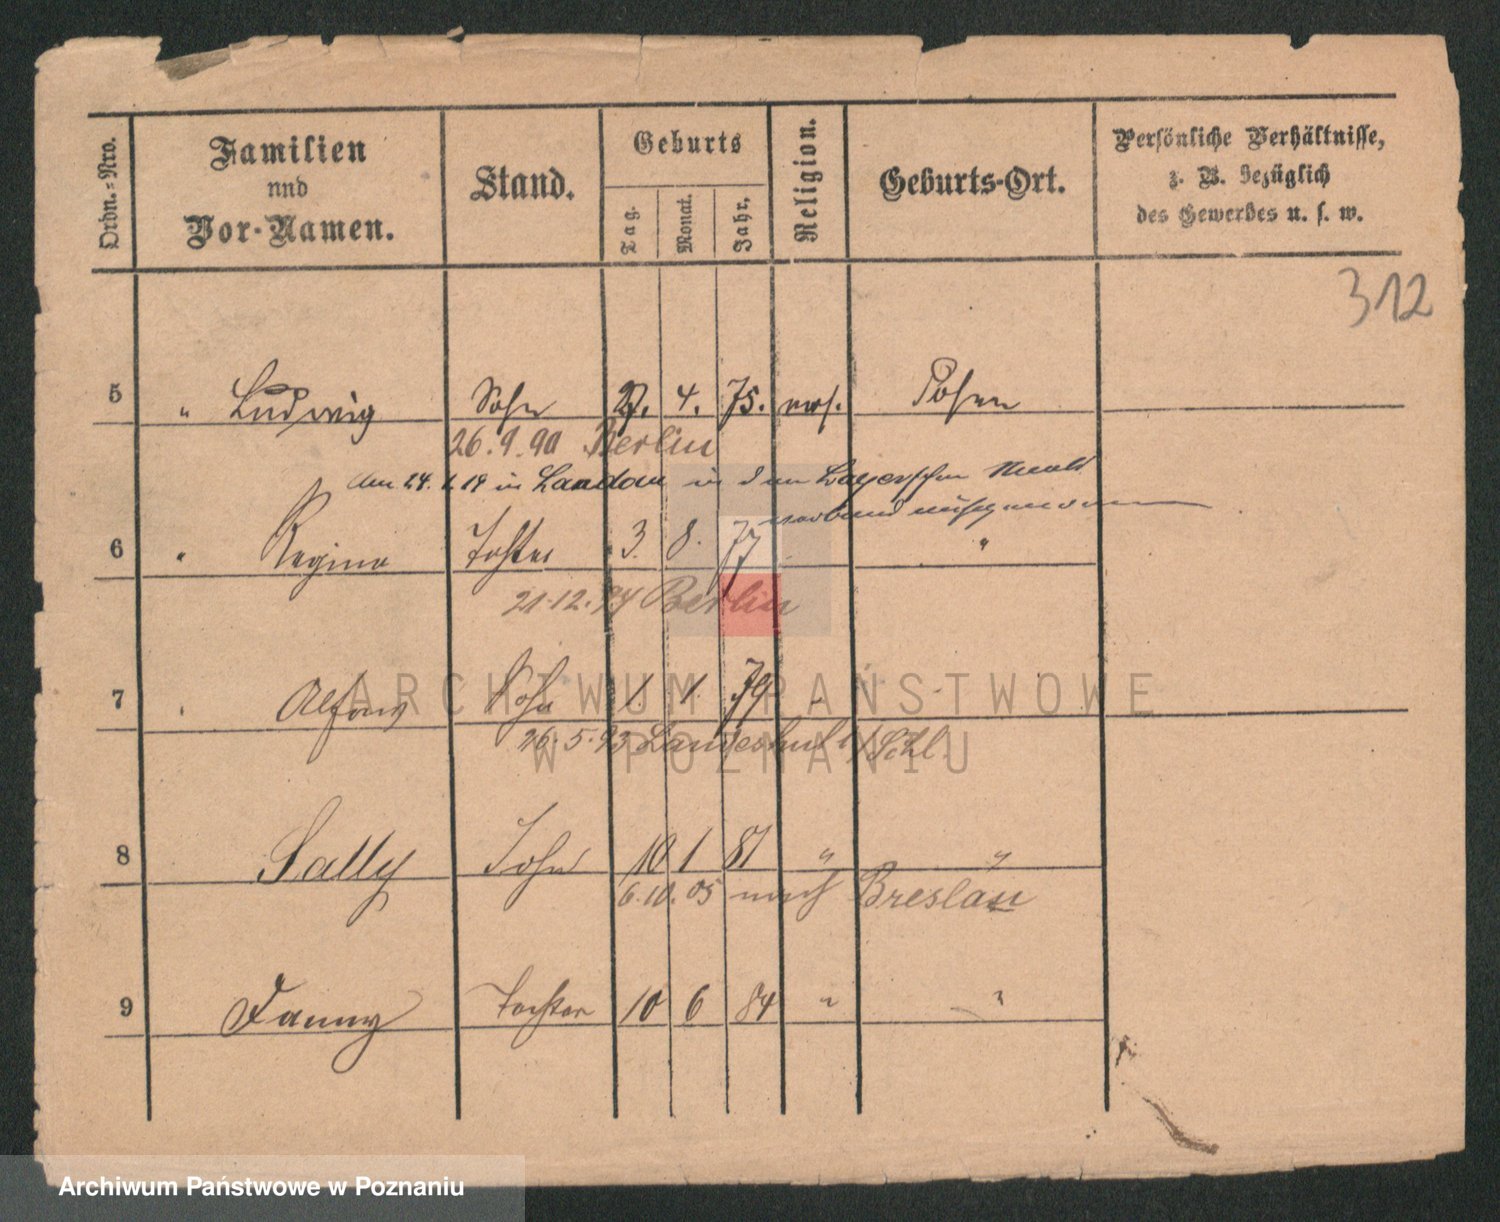 Ordn.=Nro.
Familien
und
Vor-Namen.
Stand.
Geburts
Tag.
Monat.
Jahr.
Religion.
Geburts-Ort.
Persönliche Verhältnisse,
z. B. bezüglich
des Gewerbes u. s. w.
312
5 " Ludwig Sohn 27. 4. 75. mos. Posen
26. 9. 90 Berlin
am 24. 1. 19 in Landau in den Bayerischen Staats
verband aufgenommen
6 " Regina Tochter 3. 8. 77 "
21.12.94 Berlin
7 " Alfons Sohn 1. 1. 79 " "
26.5.93 Landeshut i/Schl.
8 Sally Sohn 10 1 81 " "
6.10.05 nach Breslau
9 Fanny Tochter 10 6 84 " "
ARCHIWUM PAŃSTWOWE
W POZNANIU
Archiwum Państwowe w Poznaniu